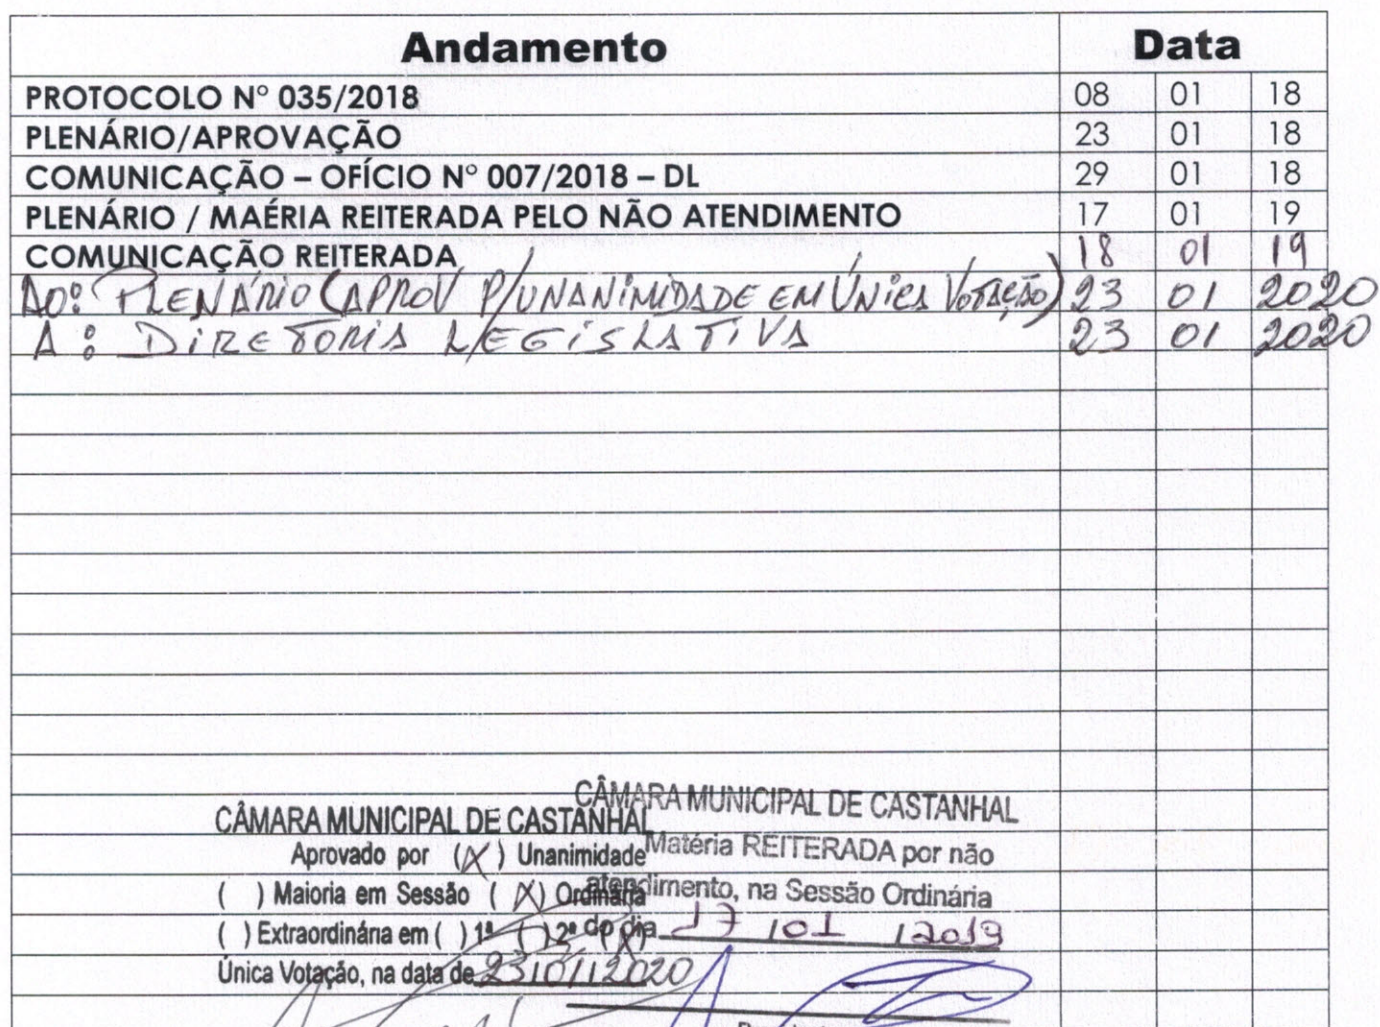 Andamento Data
PROTOCOLO Nº 035/2018 08 01 18
PLENÁRIO/APROVAÇÃO 23 01 18
COMUNICAÇÃO – OFÍCIO Nº 007/2018 – DL 29 01 18
PLENÁRIO / MAÉRIA REITERADA PELO NÃO ATENDIMENTO 17 01 19
COMUNICAÇÃO REITERADA 18 01 19
AO: PLENÁRIO (APROV P/UNANIMIDADE EM ÚNICA VOTAÇÃO) 23 01 2020
A: DIRETORIA LEGISLATIVA 23 01 2020
CÂMARA MUNICIPAL DE CASTANHAL
Aprovado por (X) Unanimidade
( ) Maioria em Sessão (X) Ordinária
( ) Extraordinária em ( ) 1ª ( ) 2ª (X)
Única Votação, na data de 23/01/2020
CÂMARA MUNICIPAL DE CASTANHAL
Matéria REITERADA por não
atendimento, na Sessão Ordinária
do dia 17/01/2019